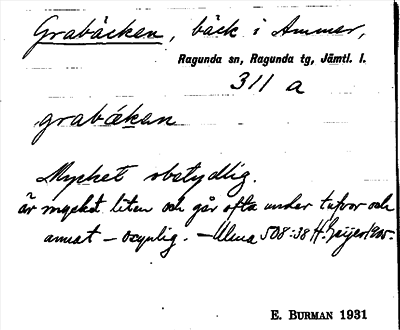 Grabäcken, bäck i Ammer,
Ragunda sn, Ragunda tg, Jämtl. l.
311 a
grabäkan
Mycket obetydlig.
är mycket liten och går ofta under tufvor och
annat – osynlig. – Ulma 508:38 H. Geijer 1905.
E. BURMAN 1931